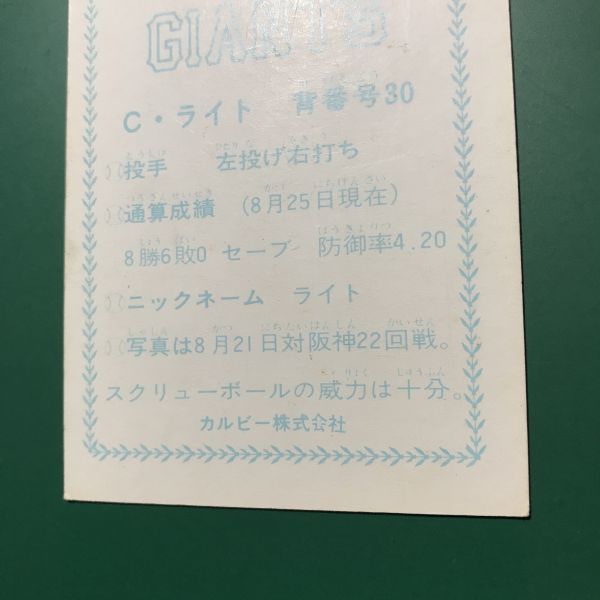 GIANTS
C・ライト 背番号30
投手 左投げ右打ち
通算成績 (8月25日現在)
8勝6敗0 セーブ 防御率4.20
ニックネーム ライト
写真は8月21日対阪神22回戦。
スクリューボールの威力は十分。
カルビー株式会社